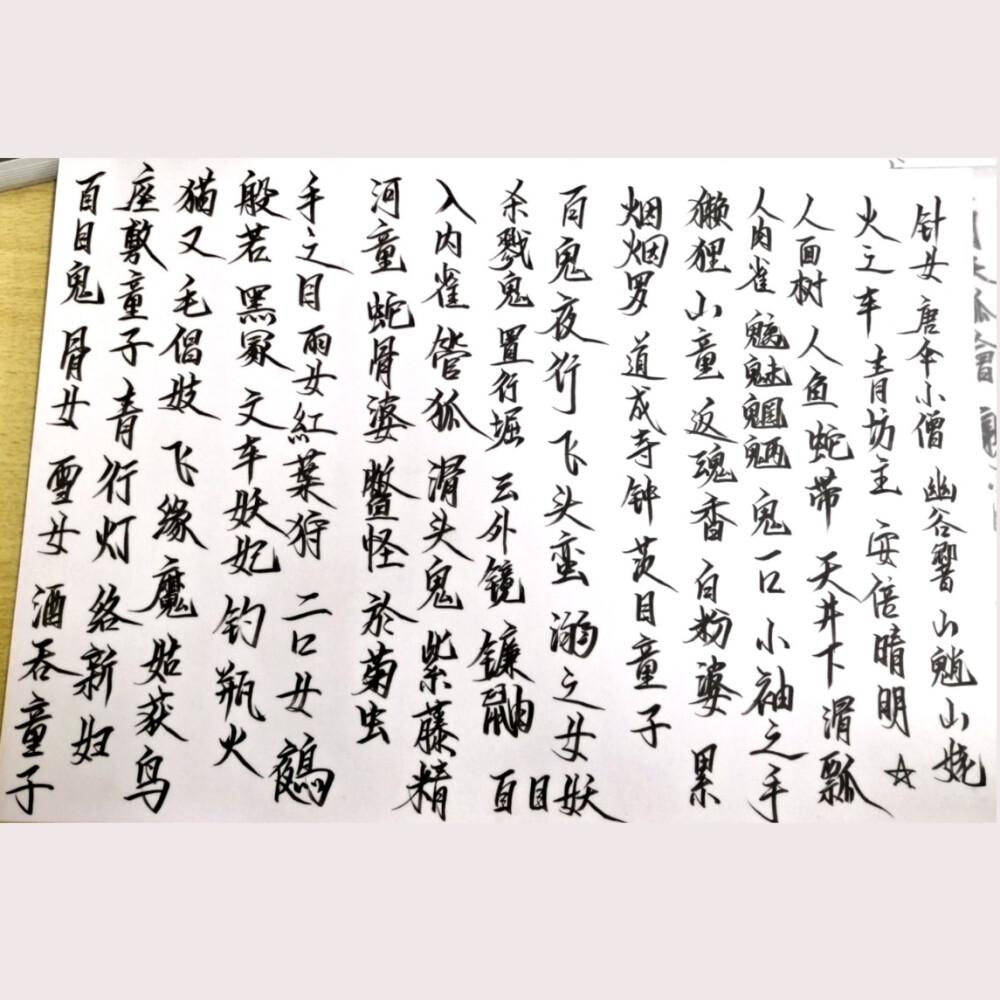 针女 唐伞小僧 幽谷響 山魈 山姥
火之车 青坊主 安倍晴明 ☆
人面树 人鱼 蛇带 天井下 滑瓢
人肉雀 魑魅魍魉 鬼一口 小袖之手
獭狸 山童 返魂香 白粉婆 累
烟烟罗 道成寺钟 茨目童子
百鬼夜行 飞头蛮 溺之女妖
杀戮鬼 置行堀 云外镜 镰鼬 百目
入内雀 管狐 滑头鬼 紫藤精
河童 蛇骨婆 鳖怪 於菊虫
手之目 雨女 紅葉狩 二口女 鵺
般若 黑冢 文车妖妃 钓瓶火
猫又 毛倡妓 飞缘魔 姑获鸟
座敷童子 青行灯 络新妇
百目鬼 骨女 雪女 酒吞童子